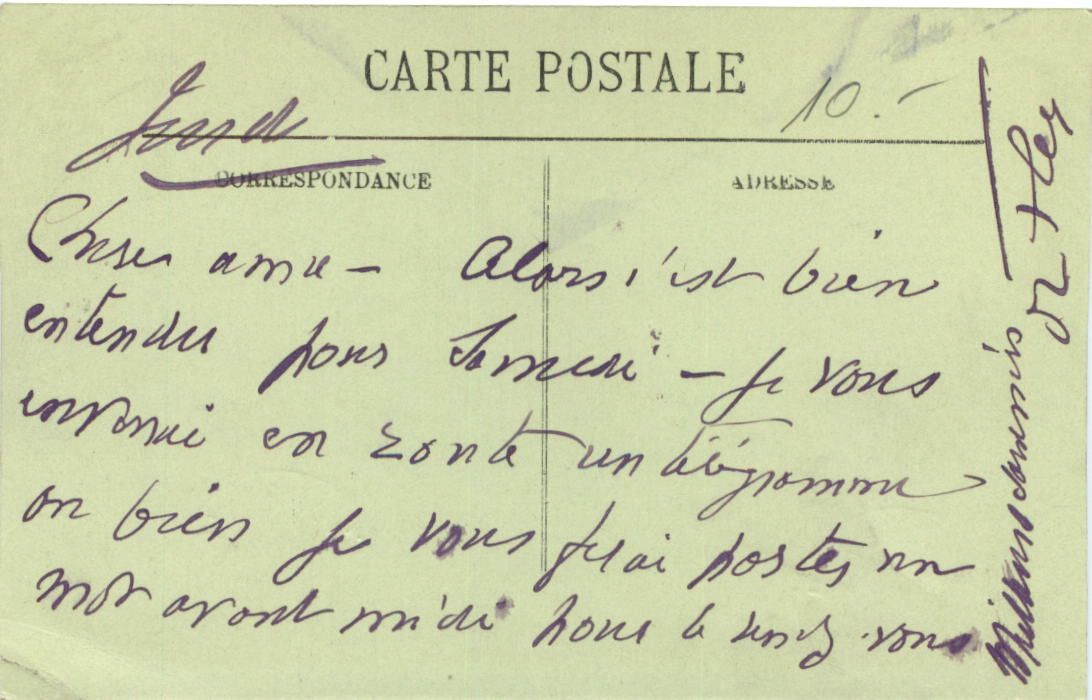 CARTE POSTALE
10.-
Jeudi
CORRESPONDANCE
ADRESSE
Chère amie - Alors c'est bien
entendu pour Samedi - Je vous
enverrai en route un télégramme
ou bien je vous ferai porter un
mot avant midi pour le rendez vous
Meilleurs souvenirs